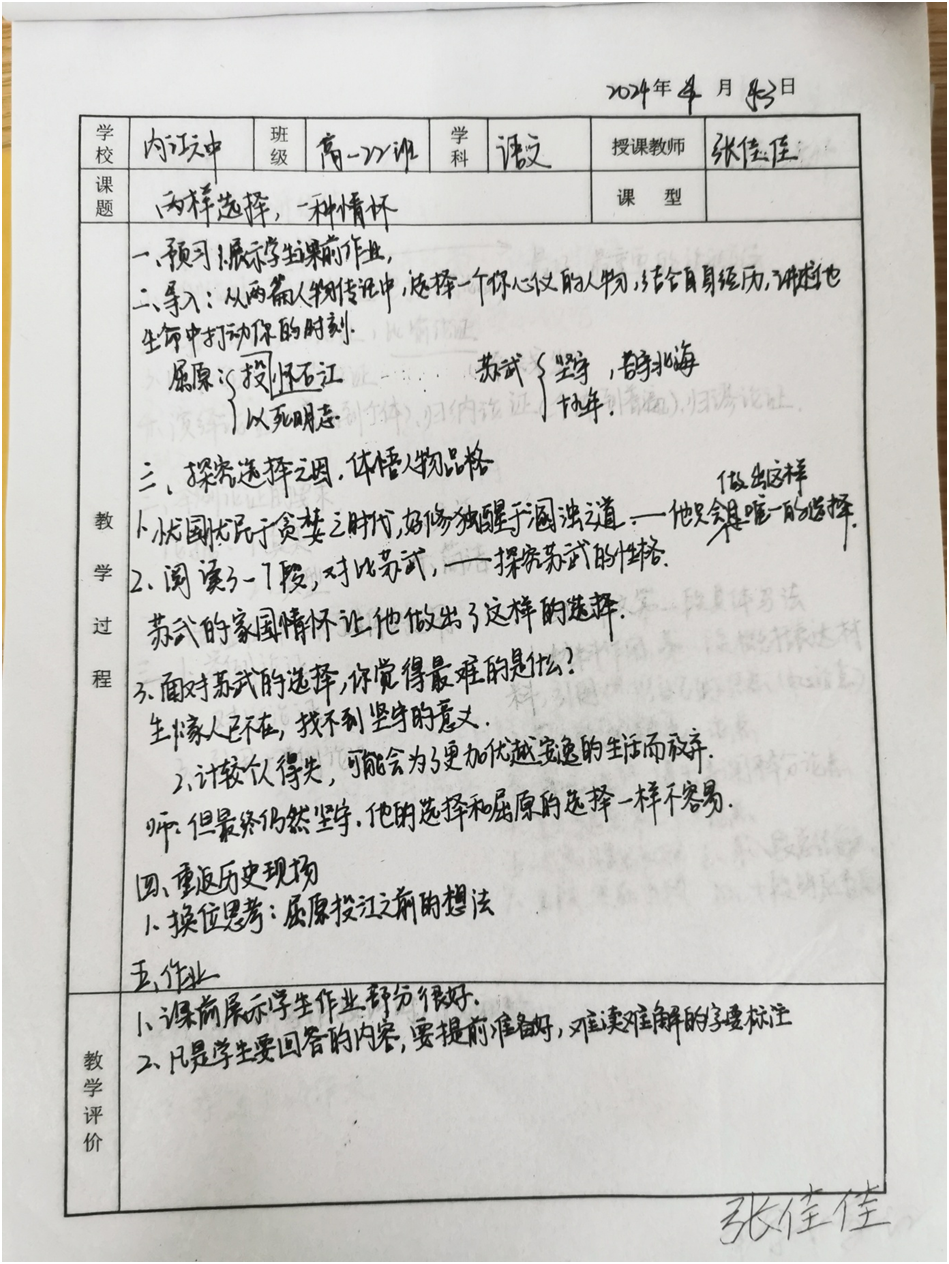 2024年4月 日
学校 内江六中 班级 高一22班 学科 语文 授课教师 张佳佳
课题 两样选择，一种情怀 课型
教学过程
一、预习：展示学生课前作业，
二、导入：从两篇人物传记中，选择一个你心仪的人物，结合自身经历，讲述他
生命中打动你的时刻.
屈原：投 怀石江 …… 苏武 坚守，苦守北海
以死明志. 十九年.
三、探究选择之因，体悟人物品格
做出这样
1、忧国忧民于贪婪之时代，好修独醒于溷浊之道.——他只会是唯一的选择.
2、阅读3-7段，对比苏武，——探究苏武的性格.
苏武的家国情怀让他做出了这样的选择.
3、面对苏武的选择，你觉得最难的是什么？
生1：家人已不在，找不到坚守的意义.
2、计较个人得失，可能会为了更加优越安逸的生活而放弃.
师：但最终仍然坚守，他的选择和屈原的选择一样不容易.
四、重返历史现场
1、换位思考：屈原投江之前的想法
五、作业
教学评价
1、课前展示学生作业部分很好.
2、凡是学生要回答的内容，要提前准备好，难读难解的字要标注
张佳佳